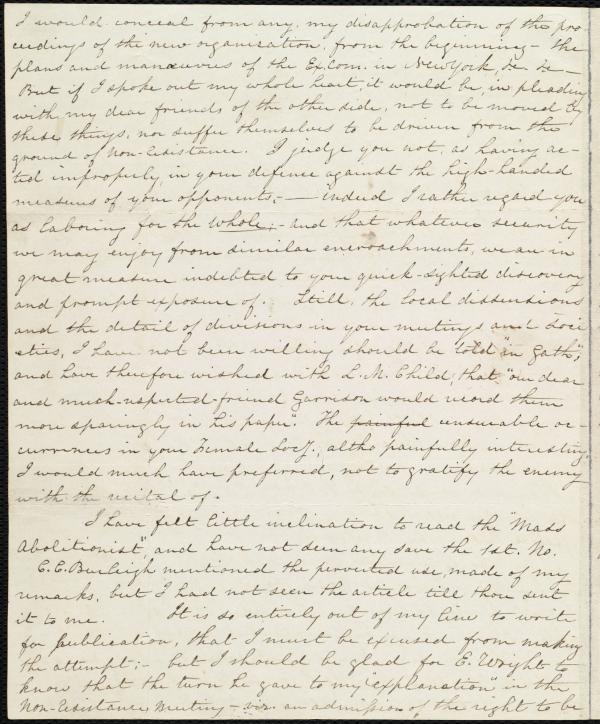 I would conceal from any, my disapprobation of the pro
ceedings of the new organization, from the beginning – the
plans and manœuvres of the Ex. Com. in New York, &c &c —
But if I spoke out my whole heart, it would be, in pleading
with my dear friends of the other side, not to be moved by
these things, nor suffer themselves to be driven from the
ground of Non-Resistance. I judge you not, as having ac-
ted improperly, in your defence against the high-handed
measures of your opponents; — indeed I rather regard you
as laboring for the whole; – and that whatever security
we may enjoy from similar encroachments, we are in
great measure indebted to your quick-sighted discovery
and prompt exposure of. Still, the local dissensions
and the detail of divisions in your meetings and Soci
eties, I have not been willing should be told "in Gath";
and have therefore wished with L. M. Child, that "our dear
and much-respected friend Garrison would record them
more sparingly in his paper. The painful unseorable oc-
currences in your Female Socy., altho painfully interesting,
I would much have preferred, not to gratify the enemy
with the recital of.
I have felt little inclination to read the "Mass
Abolitionist", and have not seen any save the 1st. No.
C. C. Burleigh mentioned the perverted use, made of my
remarks, but I had not seen the article till thou sent
it to me. It is so entirely out of my line to write
for publication, that I must be excused from making
the attempt; – but I should be glad for E. Wright to
know that the turn he gave to my "explanation" in the
Non-Resistance meeting – viz. an admission of the right to be